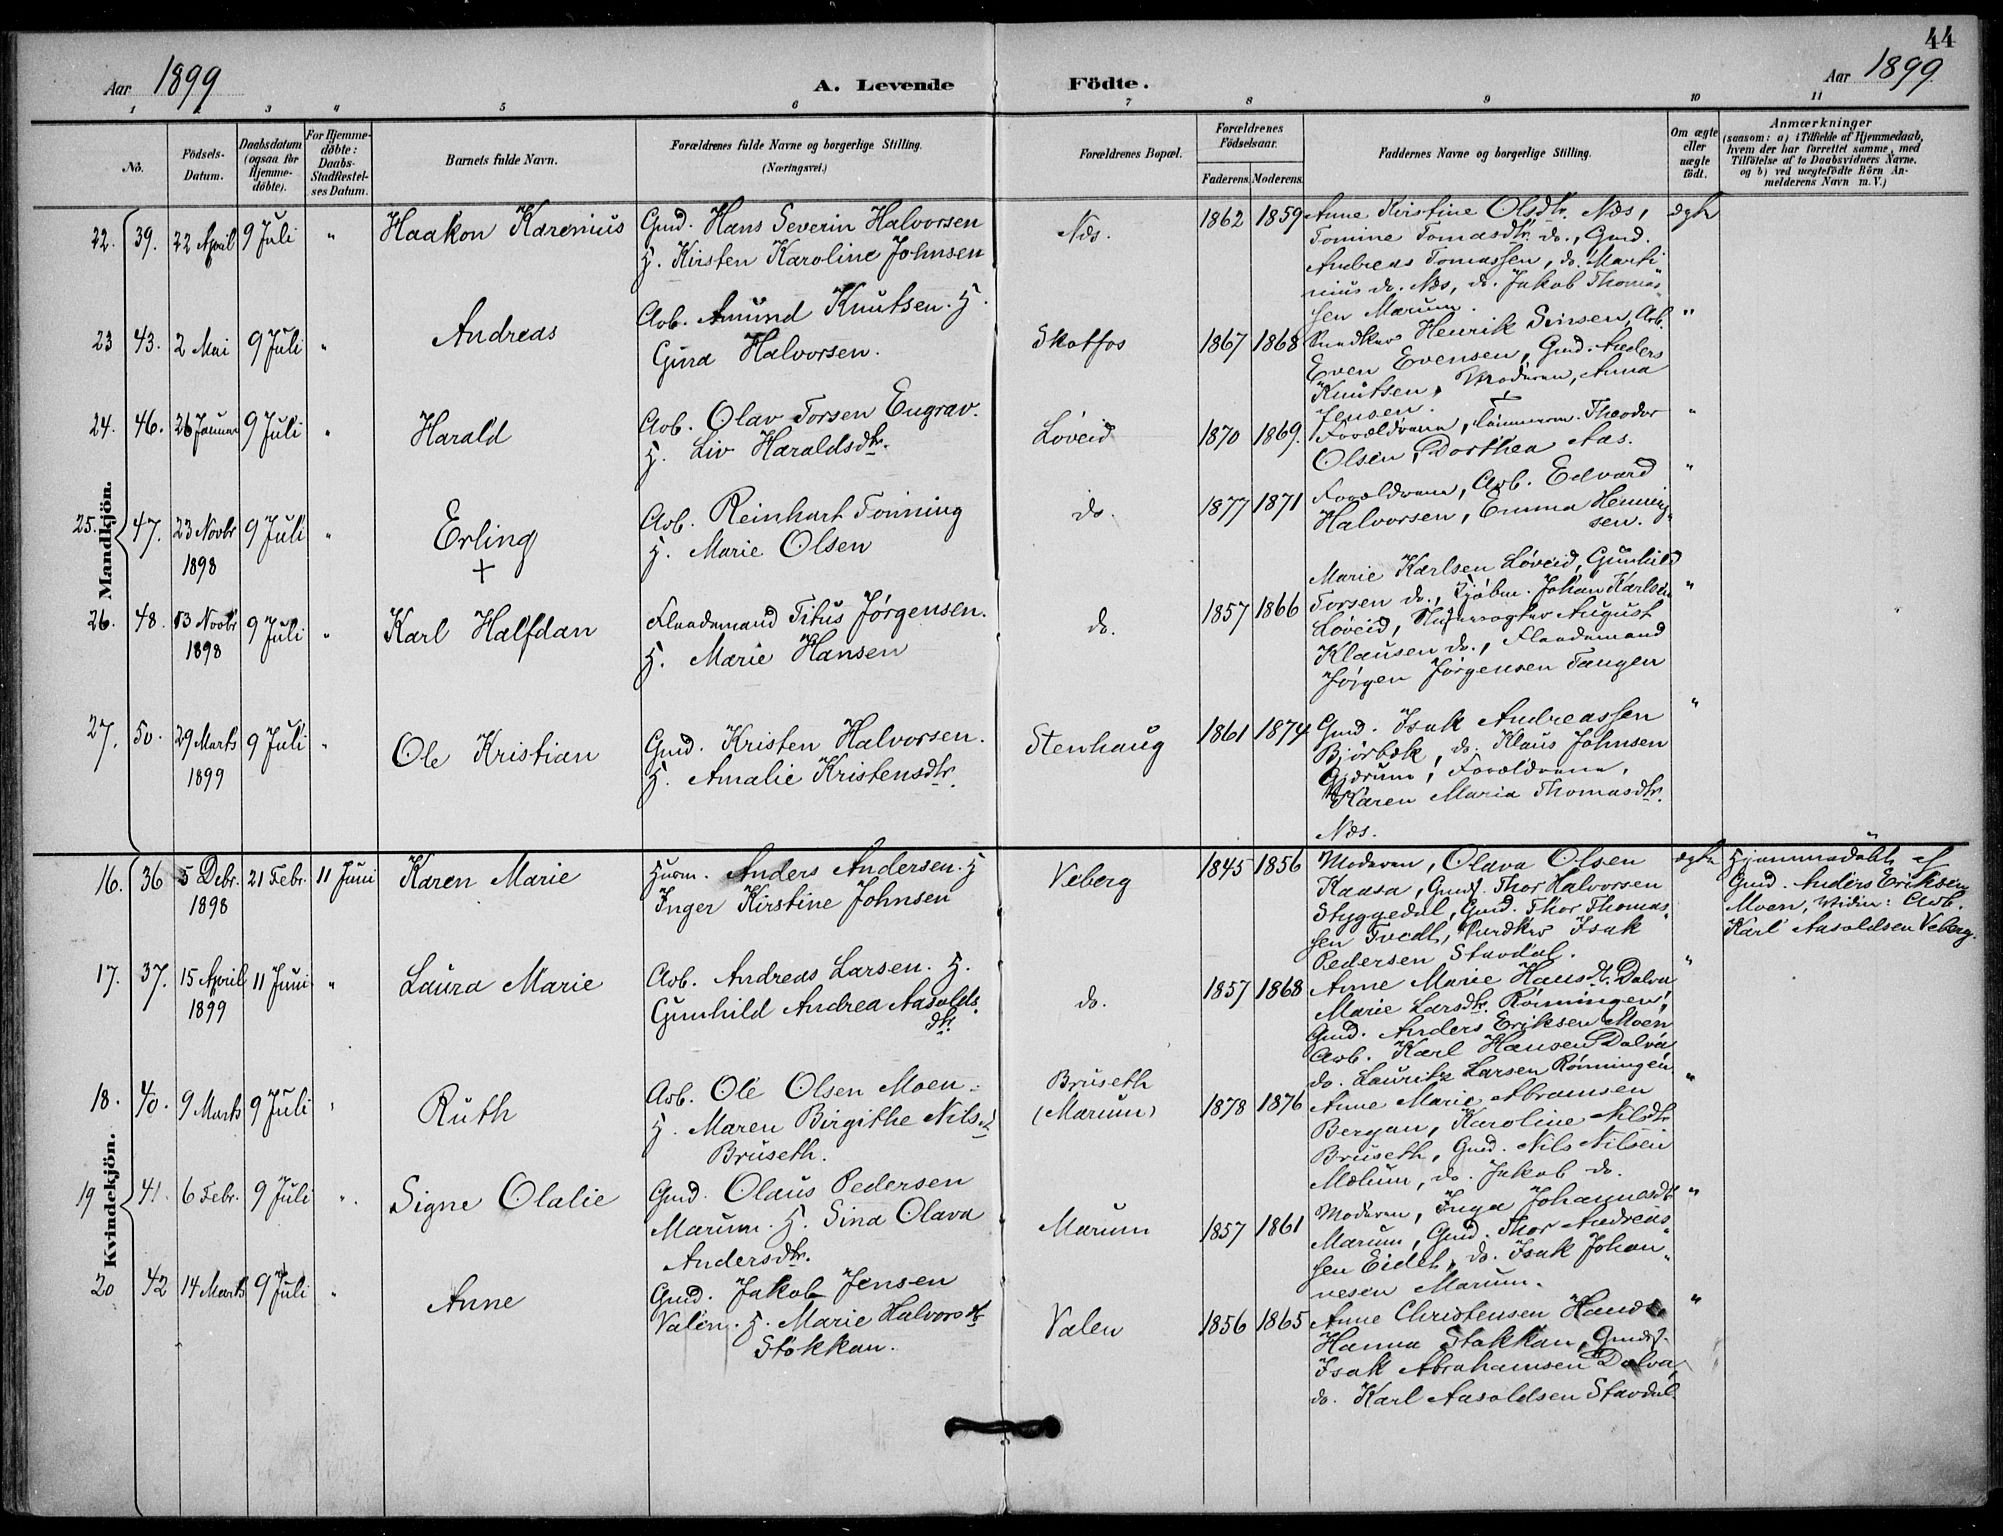 44
Aar 1899
A. Levende Födte.
Aar 1899
1 2 3 4 5 6 7 8 9 10 11
No.
Födsels-Datum.
Daabsdatum (ogsaa for Hjemme-döbte).
For Hjemme-döbte: Daabs-Stadfæstel-ses Datum.
Barnets fulde Navn.
Forældrenes fulde Navne og borgerlige Stilling. (Næringsvei.)
Forældrenes Bopæl.
Forældrenes Födselsaar.
Faderens. Moderens.
Faddernes Navne og borgerlige Stilling.
Om ægte eller uægte födt.
Anmærkninger
(saasom: a) i Tilfælde af Hjemmedaab,
hvem der har forrettet samme, med
Tilföielse af to Daabsvidners Navne.
og b) ved uægtefödte Börn An-
melderens Navn m. V.)
Mandkjön.
22. 39. 22 April 9 Juli " Haakon Karenius
Gmd. Hans Severin Halvorsen
H. Kirsten Karoline Johnsen
Næs. 1862 1859
Anne Kirstine Olsdtr. Næs,
Tomine Tomasdtr. do., Gmd.
Andreas Tomassen, do. Marti
nius do. Næs, do. Jakob Thomas-
sen Marum.
ægte
23 43. 2 Mai 9 Juli " Andreas
Arb. Amund Knutsen. H.
Gina Halvorsen.
Skotfos 1867 1868
Henrik Simsen, Arb.
Even Evensen, Gmd. Anders
Knutsen, Moderen, Anna
Jensen.
"
24. 46. 26 Januar 9 Juli " Harald
Arb. Olav Torsen Engrav.
H. Liv Haraldsdtr.
Løveid 1870 1869.
Forældrene, Tømmerm. Theodor
Olsen, Dorthea Aas.
"
25. 47. 23 Novbr 1898 9 Juli " Erling
+
Arb. Reinhart Tonning
H. Marie Olsen
do. 1877 1871
Forældrene, Arb. Edvard
Halvorsen, Emma Henning-
sen.
"
26. 48. 13 Novbr 1898 9 Juli " Karl Halfdan
Flaademand Titus Jørgensen.
H. Marie Hansen
do. 1857 1866
Marie Karlsen Løveid, Gunhild
Torsen do., Kjøbm. Johan Karlsen
Løveid, August
Klausen do., Flaademand
Jørgen Jørgensen Tangen
"
27. 50. 29 Marts 1899 9 Juli " Ole Kristian
Gmd. Kristen Halvorsen.
H. Amalie Kristensdtr.
Stenhaug 1861 1874
Gmd. Isak Andreassen
Bjørbæk, do. Klaus Johnsen
Gjærum, Forældrene,
Karen Maria Thomasdtr.
Næs.
"
Kvindekjön.
16. 36 5 Debr. 1898 21 Febr. 11 Juni Karen Marie
Husm. Anders Andersen. H
Inger Kirstine Johnsen
Veberg 1845 1856
Moderen, Olava Olsen
Kaasa, Gmds. Thor Halvorsen
Styggedal, Gmd. Thor Thomas-
sen Tvedt, Snedker Isak
Pedersen Stavdal.
ægte
Hjemmedøbt af
Gmd. Anders Eriksen
Moen, Vidn: Arb.
Karl Aasoldsen Veberg.
17. 37. 15 April 1899 11 Juni " Laura Marie
Arb. Andreas Larsen. H.
Gunhild Andrea Aasolds.
dtr.
do. 1857 1868
Anne Marie Hansdt. Dalva
Marie Larsdtr. Rønningen,
Gmd. Anders Eriksen Moen
Arb. Karl Hansen Dalva,
do. Lauritz Larsen Rønningen
"
18. 40. 9 Marts 9 Juli " Ruth
Arb. Ole Olsen Moen.
H. Maren Birgithe Nilsdt
Bruseth.
Bruseth
(Marum) 1878 1876
Anne Marie Abramsen
Bergan, Karoline Nilsdtr
Bruseth, Gmd. Nils Nilsen
Mælum, do. Jakob do.
"
19 41. 6 Febr. 9 Juli " Signe Olalie
Gmd. Olaus Pedersen
Marum. H. Sina Olava
Andersdtr.
Marum 1857 1861
Moderen, Inga Johannesdt
Marum, Gmd. Thor Andreas-
sen Eidet, do. Isak Johan-
nesen Marum.
"
20 42 14 Marts 9 Juli " Anne
Gmd. Jakob Jensen
Valen. H. Marie Halvorsdt
Stokkan.
Valen 1856 1865
Anne Christensen
Hanna Stokkan, Gmds.
Isak Abrahamsen Dalva,
do. Karl Aasoldsen Stavdal.
"